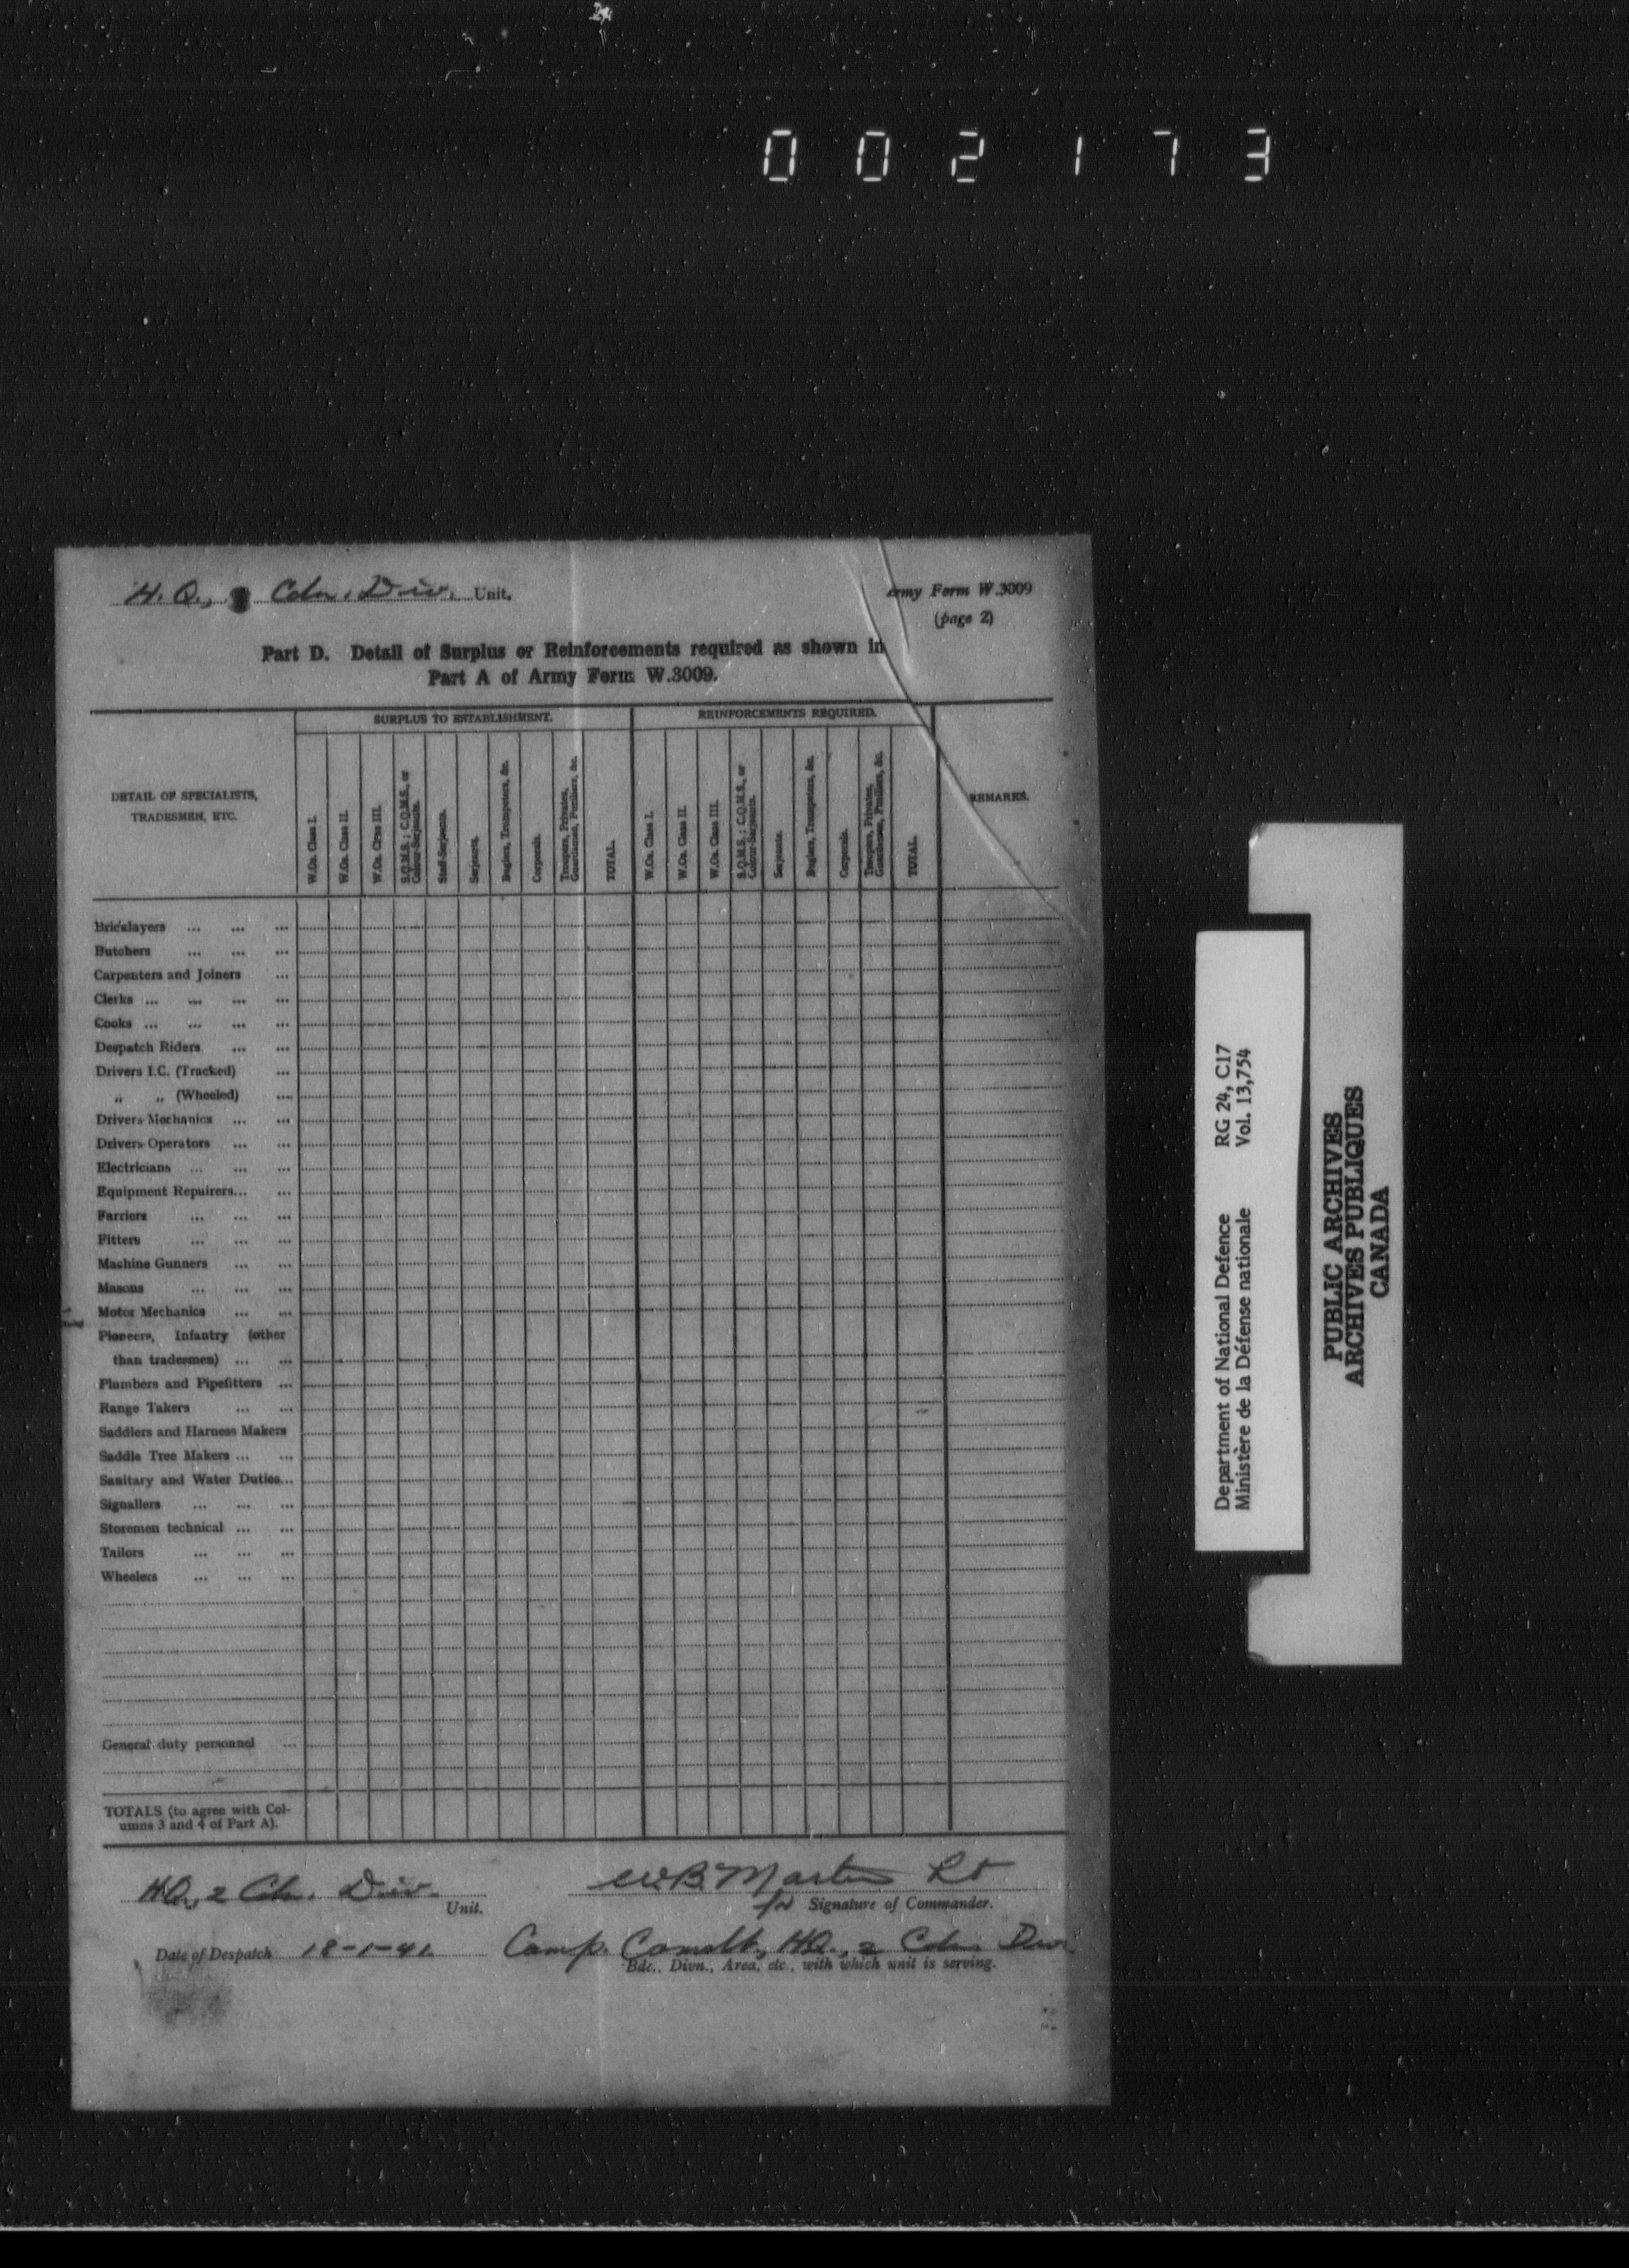 002173
H.Q., Cdn. Div. Unit.
Army Form W.3009
(page 2)
Part D. Detail of Surplus or Reinforcements required as shown in
Part A of Army Form W.3009.
DETAIL OF SPECIALISTS,
TRADESMEN, ETC.
SURPLUS TO ESTABLISHMENT.
W.Os. Class I.
W.Os. Class II.
W.Os. Class III.
S.Q.M.S.; C.Q.M.S., or
Colour-Serjeants.
Staff-Serjeants.
Serjeants.
Buglers, Trumpeters, &c.
Corporals.
Troopers, Privates,
Guardsmen, Fusiliers, &c.
TOTAL.
REINFORCEMENTS REQUIRED.
W.Os. Class I.
W.Os. Class II.
W.Os. Class III.
S.Q.M.S.; C.Q.M.S., or
Colour-Serjeants.
Serjeants.
Buglers, Trumpeters, &c.
Corporals.
Troopers, Privates,
Guardsmen, Fusiliers, &c.
TOTAL.
REMARKS.
Bricklayers ... ... ...
Butchers ... ... ...
Carpenters and Joiners ...
Clerks ... ... ... ...
Cooks ... ... ... ...
Despatch Riders ... ...
Drivers I.C. (Tracked) ...
„ „ (Wheeled) ...
Drivers Mechanics ... ...
Drivers Operators ... ...
Electricians ... ... ...
Equipment Repairers... ...
Farriers ... ... ...
Fitters ... ... ...
Machine Gunners ... ...
Masons ... ... ...
Motor Mechanics ... ...
Pioneers, Infantry (other
than tradesmen) ... ...
Plumbers and Pipefitters ...
Range Takers ... ...
Saddlers and Harness Makers
Saddle Tree Makers ... ...
Sanitary and Water Duties...
Signallers ... ... ...
Storemen technical ... ...
Tailors ... ... ...
Wheelers ... ... ...
General duty personnel ...
TOTALS (to agree with Col-
umns 3 and 4 of Part A).
HQ, 2 Cdn. Div. Unit.
W.B. Martin Lt
Signature of Commander.
Date of Despatch 18-1-41.
Camp. Comdt, HQ., 2 Cdn Div.
Bde., Divn., Area, etc., with which unit is serving.
Department of National Defence RG 24, C17
Ministère de la Défense nationale Vol. 13,754
PUBLIC ARCHIVES
ARCHIVES PUBLIQUES
CANADA